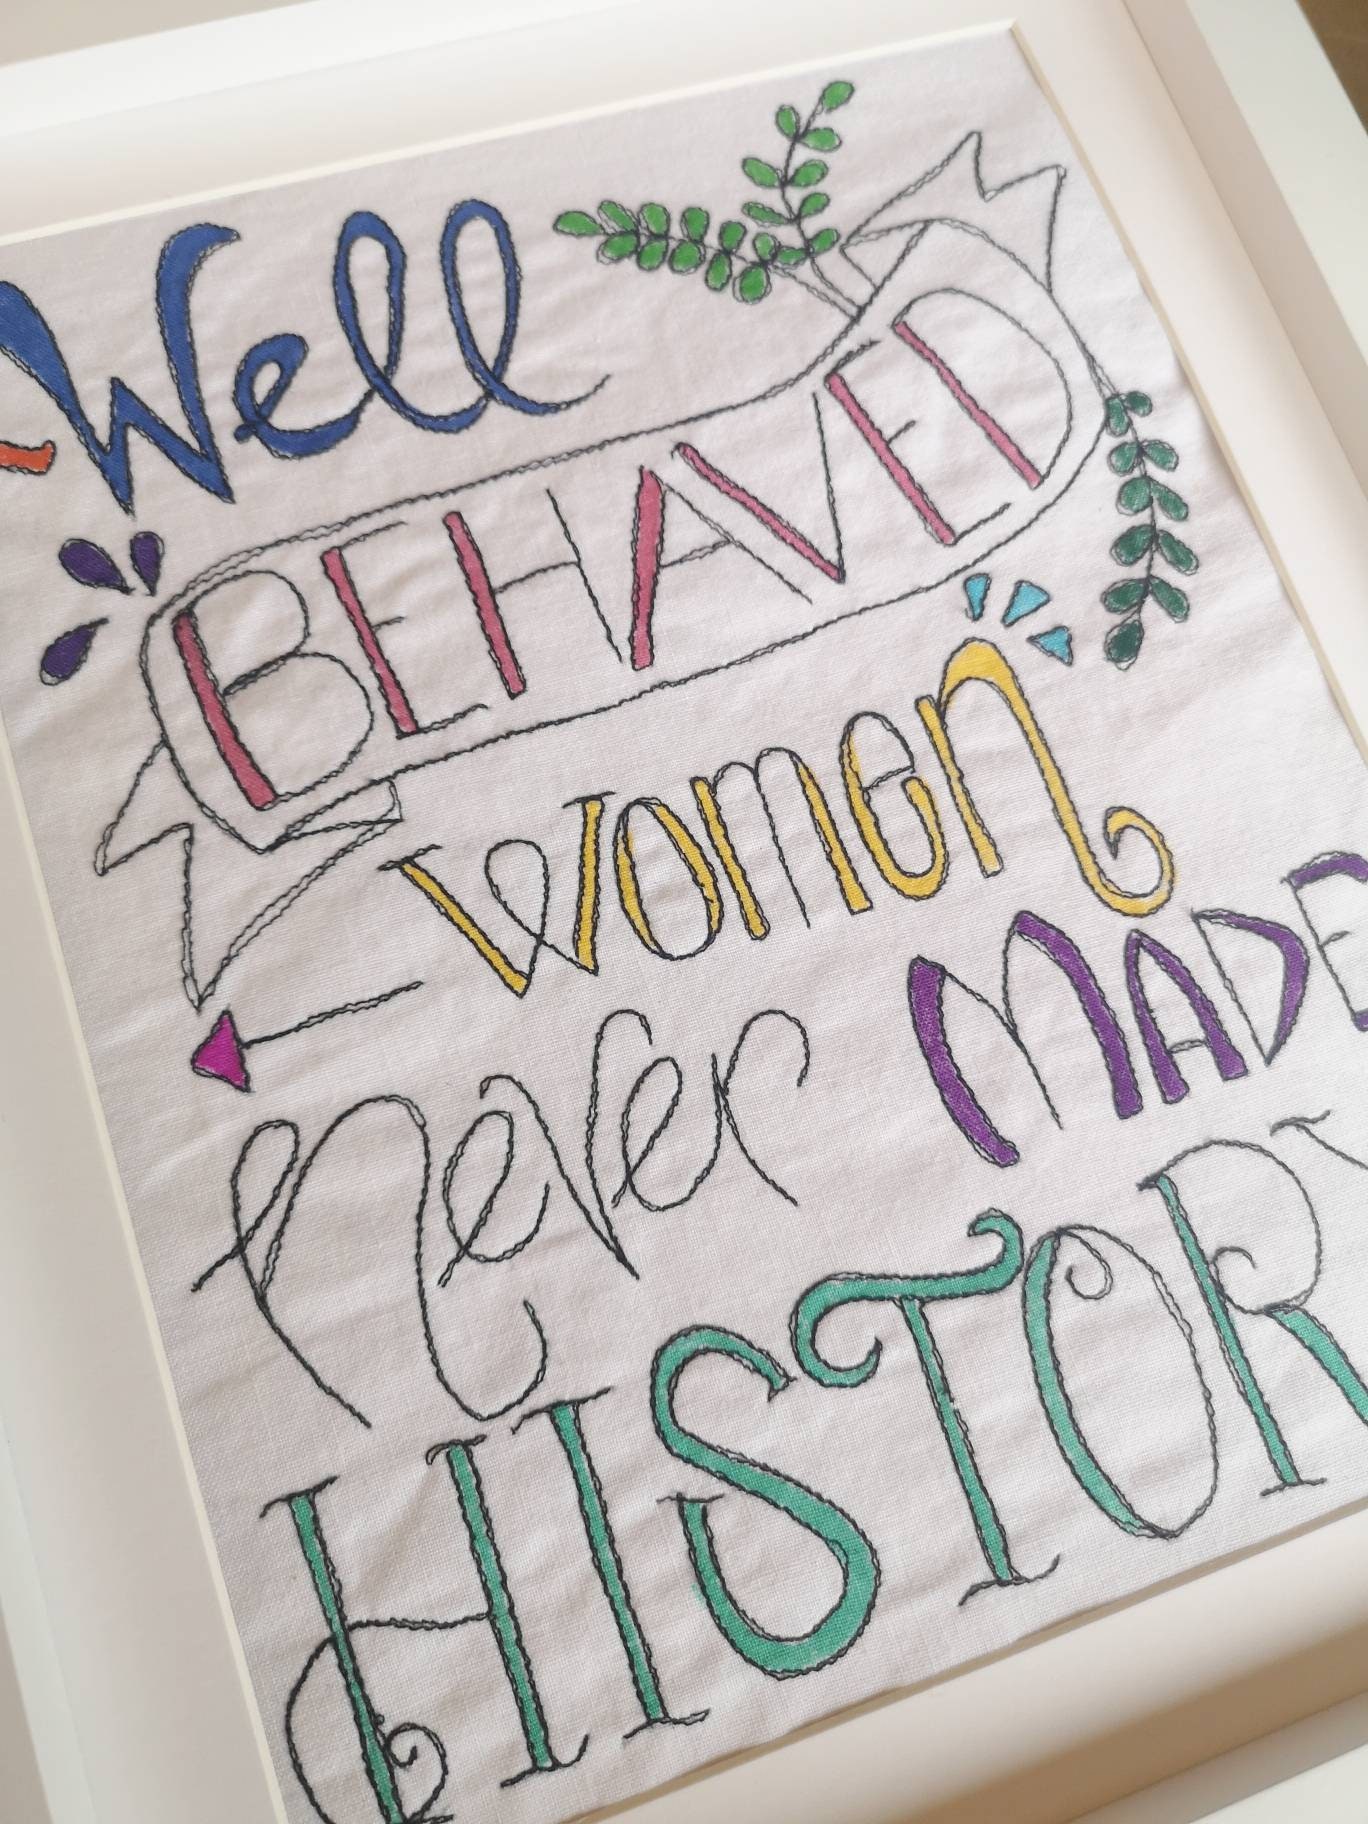 Well
BEHAVED
women
never MADE
HISTORY